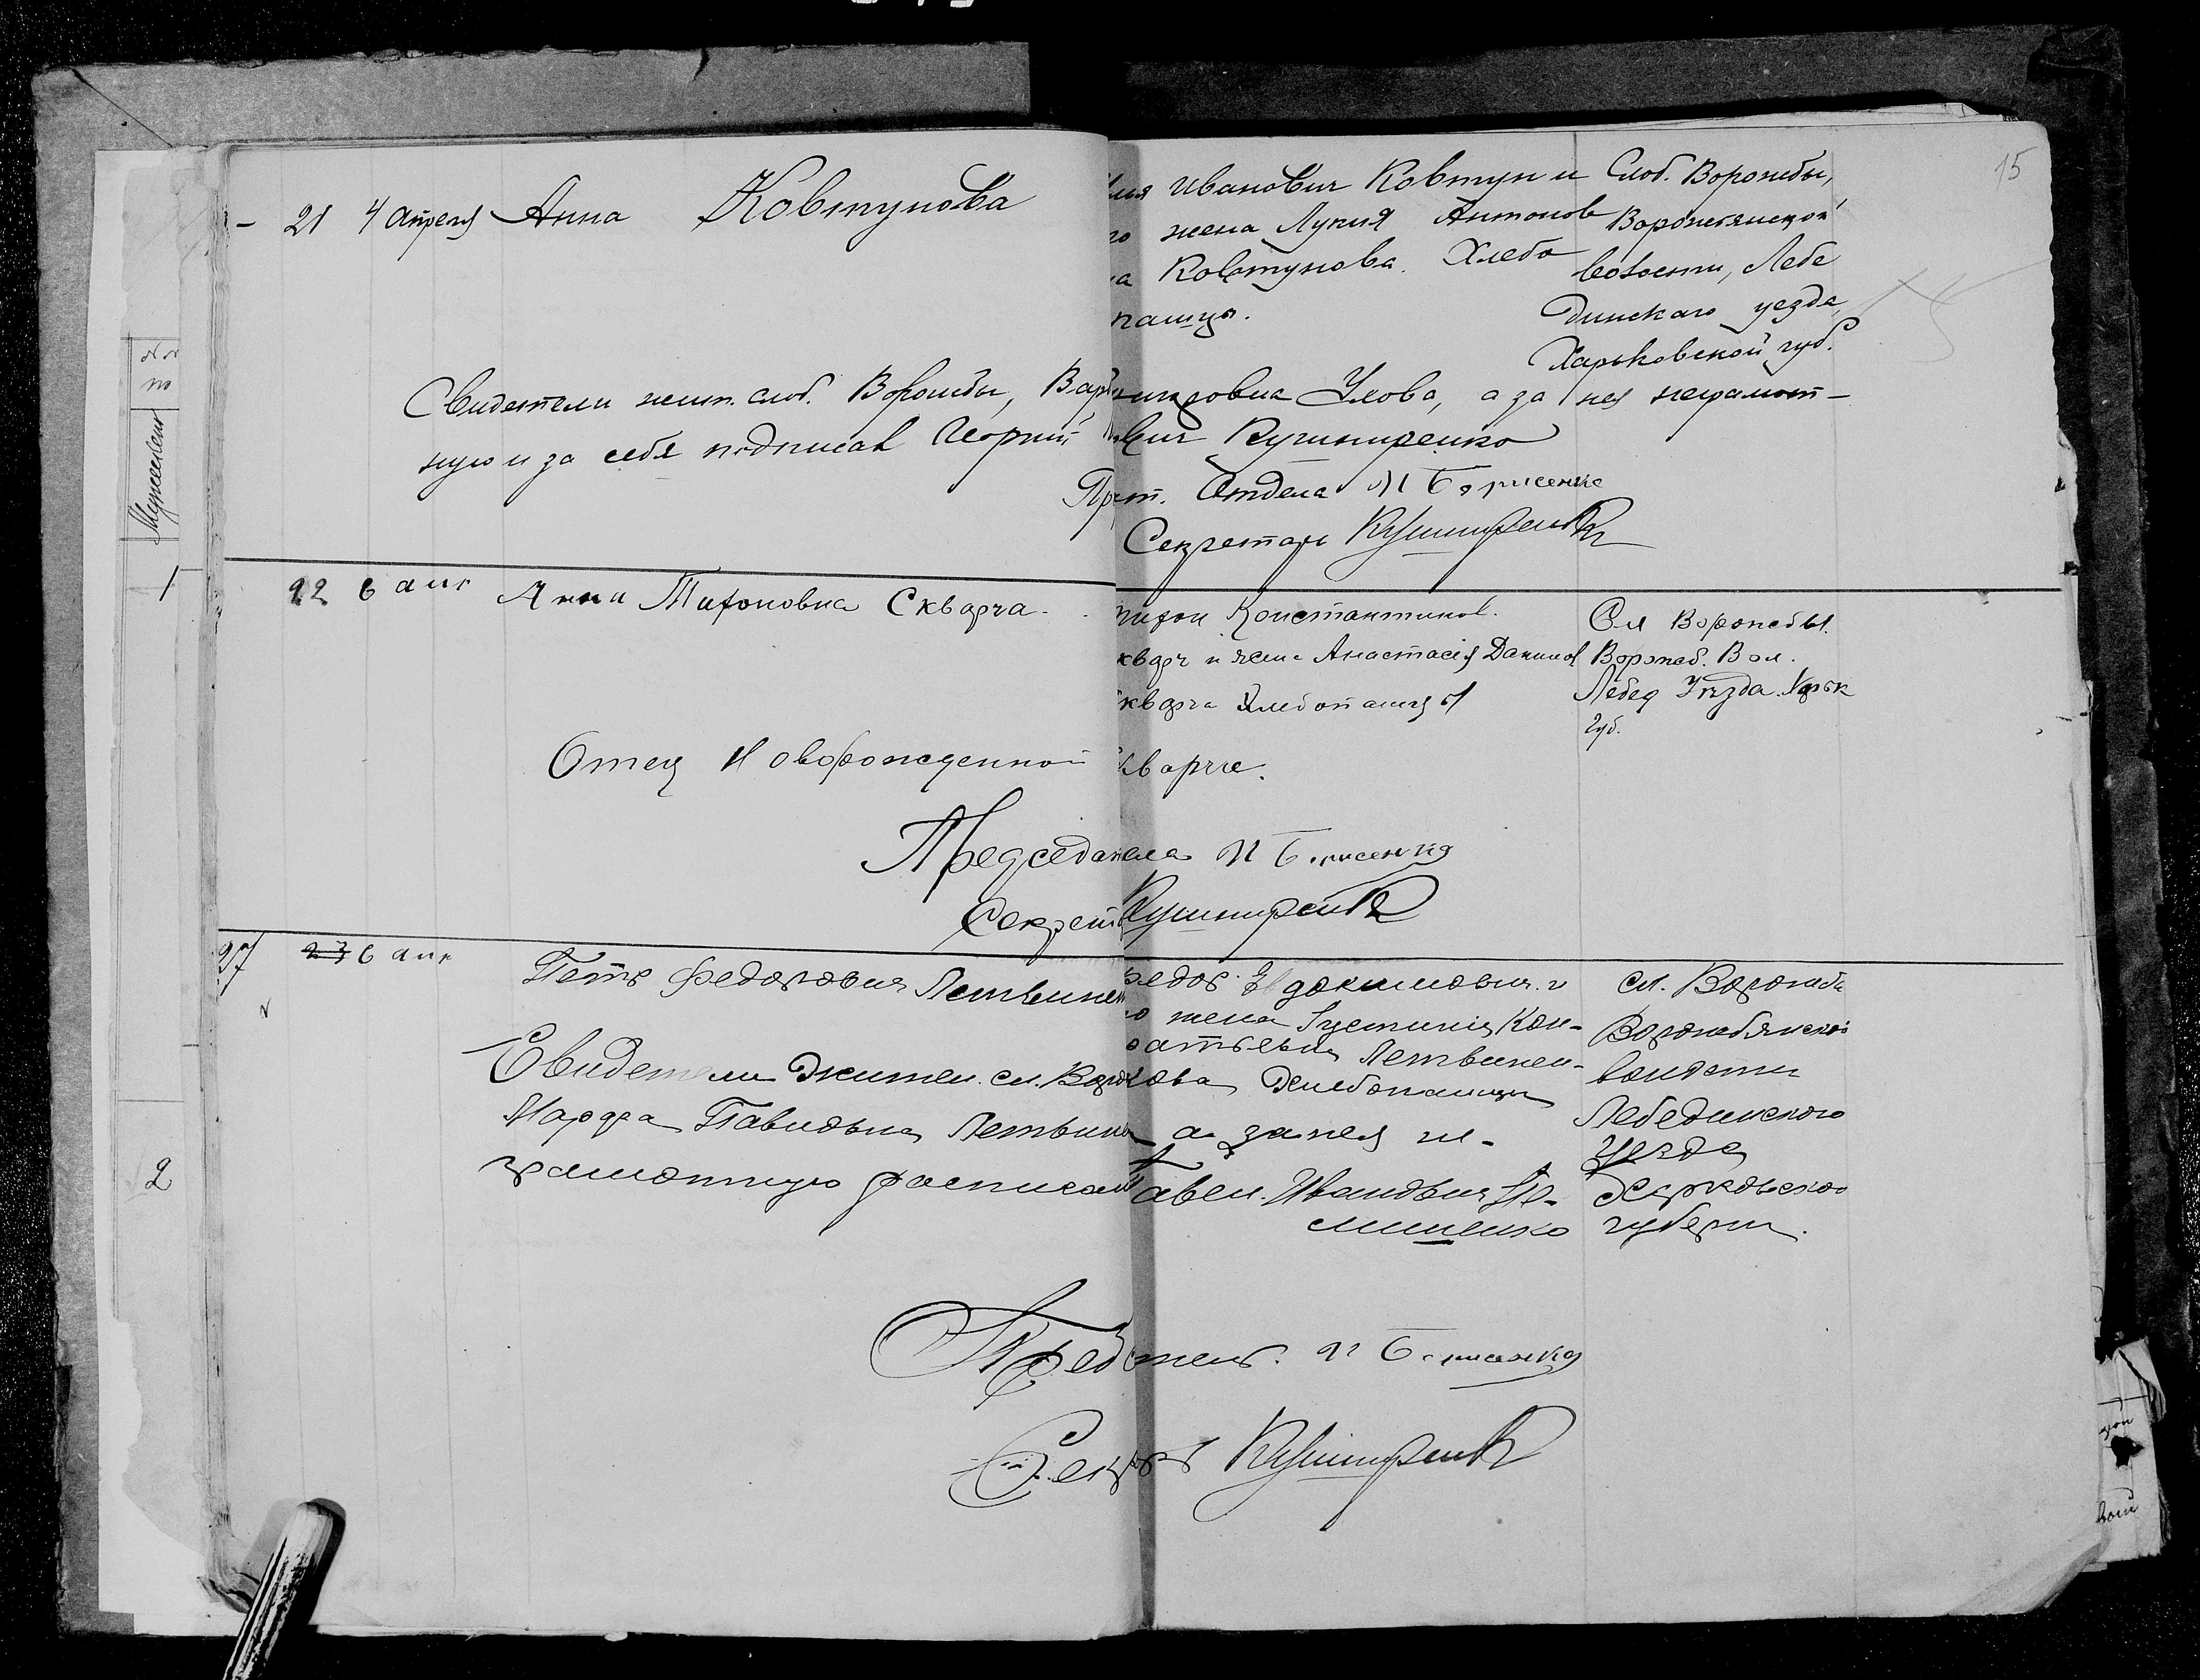 15
№№
по
Мужескаго
1
2
– 21 4 Апреля Анна Ковтунова
Иванович Ковтун и
жена Лукия Антонов
на Ковтунова. Хлебо
пашцы.
Слоб. Ворожбы,
Ворожбянской
волости, Лебе
динскаго уезда,
Харьковской губ.
Свидетели жит. слоб. Ворожбы, Улова, а за нея неграмот–
ную и за себя подписал Георгий Кушниренко
Отдела И Борисенко
Секретарь Кушниренко
22 6 апр Анна Тихоновна Скварча.
Тихон Константинов.
Скварч и жена Анастасия Данилов
Скварча Хлебопашцы
Сл Ворожбы.
Ворожб. Вол.
Лебед Уезда. Харьк
Губ.
Отец Новорожденной Скварче.
Председателя И Борисенко
Секрет Кушниренко
97 23 6 апр
Петр Федорович Летвинен
Федор. Евдокимович. и
жена Иустиния Кон-
ратьевна Летвинен-
кова Хлебопашцы
сл. Ворожба
Ворожбянской
волости
Лебединского
уезда
Харковского
губерни.
Свидетели Жител. сл. Ворож
Марфа Павловна Летвин а за нея не-
грамотную росписался Павел. Иванович
мишенко
Предс тель. И Борисенко
Секрет Кушниренко